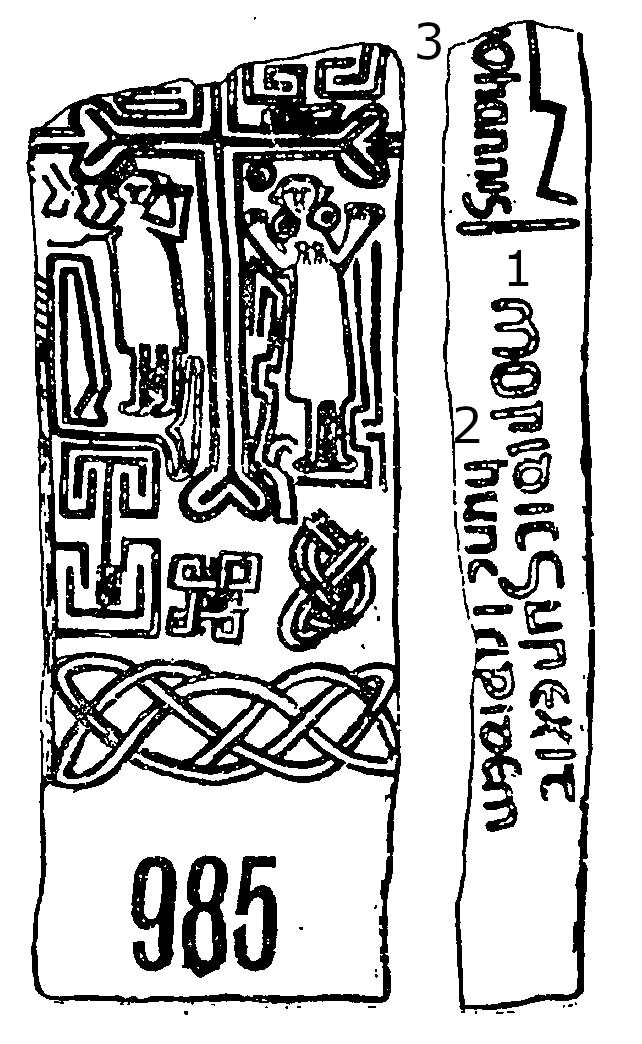 3
ohannis
1
moridic Surexit
2
hunc lapidem
985